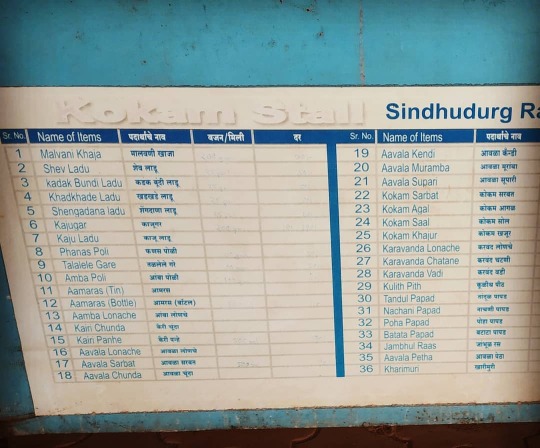 Kokam Stall Sindhudurg Ra
Sr. No. Name of Items पदार्थाचे नाव वजन/मिली दर
1 Malvani Khaja मालवणी खाजा
2 Shev Ladu शेव लाडू
3 Kadak Bundi Ladu कडक बुंदी लाडू
4 Khadkhade Ladu खडखडे लाडू
5 Shengadana ladu शेंगदाणा लाडू
6 Kajugar काजूगर
7 Kaju Ladu काजू लाडू
8 Phanas Poli फणस पोळी
9 Talalele Gare तळलेले गरे
10 Amba Poli आंबा पोळी
11 Aamaras (Tin) आमरस
12 Aamaras (Bottle) आमरस (बॉटल)
13 Aamba Lonache आंबा लोणचे
14 Kairi Chunda कैरी चुंदा
15 Kairi Panhe कैरी पन्हे
16 Aavala Lonache आवळा लोणचे
17 Aavala Sarbat आवळा सरबत
18 Aavala Chunda आवळा चुंदा
Sr. No. Name of Items पदार्थाचे नाव
19 Aavala Kendi आवळा कॅन्डी
20 Aavala Muramba आवळा मुरांबा
21 Aavala Supari आवळा सुपारी
22 Kokam Sarbat कोकम सरबत
23 Kokam Agal कोकम आगळ
24 Kokam Saal कोकम सोल
25 Kokam Khajur कोकम खजुर
26 Karavanda Lonache करवंद लोणचे
27 Karavanda Chatane करवंद चटणी
28 Karavanda Vadi करवंद वडी
29 Kulith Pith कुळीथ पीठ
30 Tandul Papad तांदुळ पापड
31 Nachani Papad नाचणी पापड
32 Poha Papad पोहा पापड
33 Batata Papad बटाटा पापड
34 Jambhul Raas जांभूळ रस
35 Aavala Petha आवळा पेठा
36 Kharimuri खारीमुरी